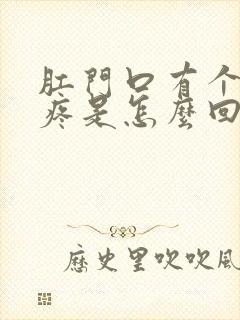 肛門口有个
疼是怎麽回
歷史里吹吹風